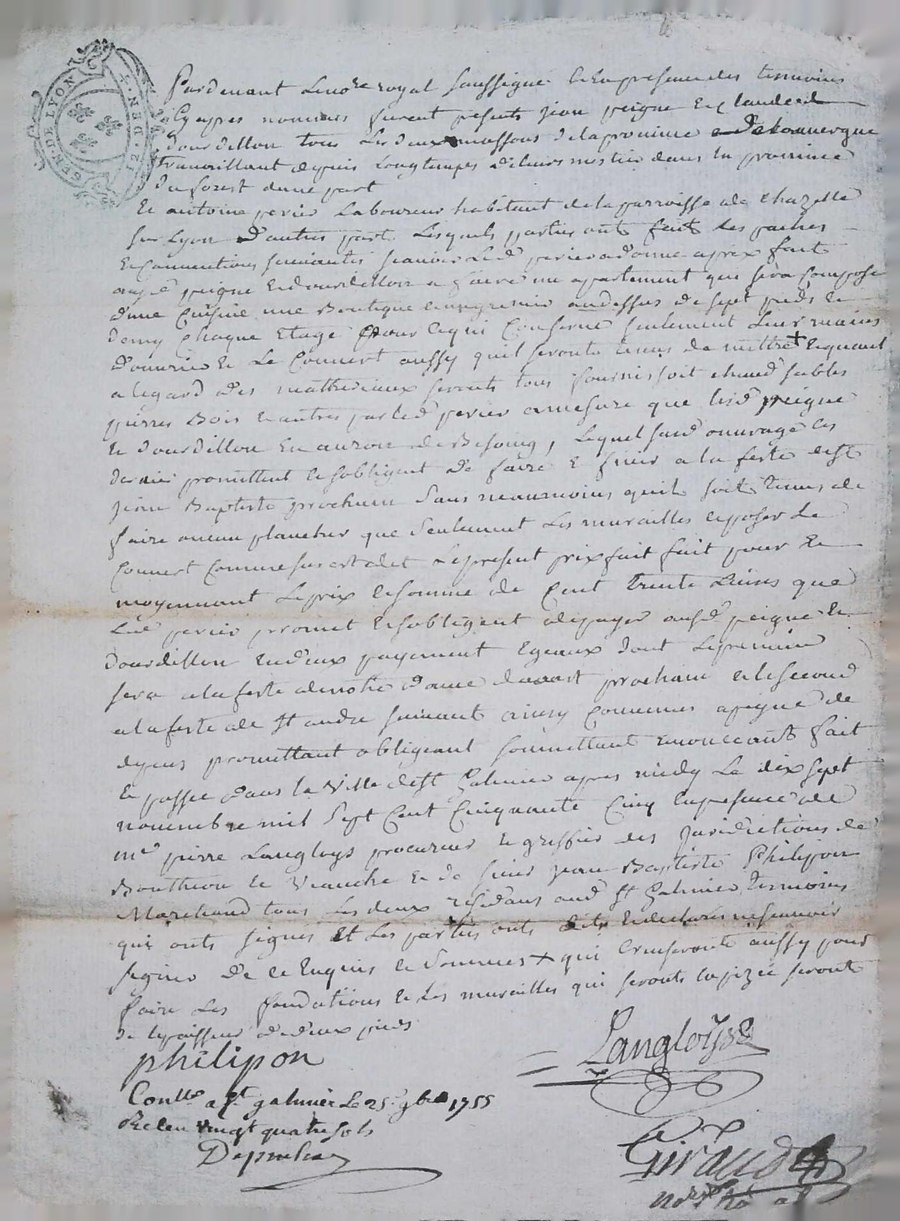 GEN. DE LYON 12. DEN.
Pardevant Le notre royal soussigné et En presence des temoins
Cy apres nommés furent presents jean peigne et Claude
dourdillon tous Les deux massons de la province de Rouuergue
travaillant depuis Longtemps de leurs mestier dans la province
du forest d'une part
Et antoine perier Laboureur habitant de la parroisse de chazelle
sur Lyon d'autres part. Lesquels parties ont fait les paches
Et Conventions suivantes scavoir Led perier a donné a prix fait
aux d peigne Et dourdillon a faire un appartement qui sera composé
d'une Cuisine une Boutique et un grenier au dessus de sept pieds Et
demy chaque Etage pour ce qui Conserne seulement Leurs mains
d'ouvrie et Le Couvert aussy qu'il seronts tenus de mettre + Et quant
a legard des mathereaux seronts tous fournis soit chaud sables
pierres Bois Et autres par led perier a mesure que lesd peigne
Et dourdillon En auron de Besoing, Lequel susd ouvrage ces
dernier promettent Et sobligent de faire Et finir a la feste de st
jean Baptiste prochain sans neanmoins quils soit tenus de
faire aucun plancher que seulement Les murailles et poser Le
Couvert Comme sus est dit Le present prix fait fait pour Et
moyennant Le prix Et somme de Cent trente Livres que
Led perier promet Et sobligent de payer ausd peigne Et
dourdillon En deux payement Egeaux dont Le premier
sera a la feste de notre dame daoust prochain et le second
a la feste de st andre suivant ainsy Convenus a peigne de
dyeus promettant obligeant soumettant renoncants fait
Et passé dans la Ville de st Galmier apres midy Le dix sept
novembre mil sept Cent Cinquante Cinq En presence de
me pierre Langloys procureur Et greffier des juridictions de
Bouthéon Et Veauche Et de sieur jean Baptiste Philipon
Marchand tous Les deux résidans aud st Galmier temoins
qui onts signés Et Les parties onts dits Et declarés ne scavoir
signer de ce Enquis Et sommés + qui Creuseronts aussy pour
faire Les fondations Et Les murailles qui seronts seronts
de lepaisseur de deux pieds
philipon
Langloys
Contlle a st galmier Le 25 9bre 1755
Reçeu vingt quatre sols
Giraud
nore